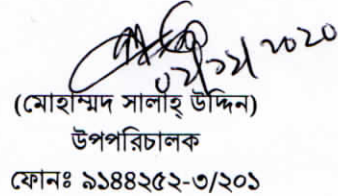 ০২/১২/২০২০
(মোহাম্মদ সালাহ্ উদ্দিন)
উপপরিচালক
ফোনঃ ৯১৪৪২৫২-৩/২০১